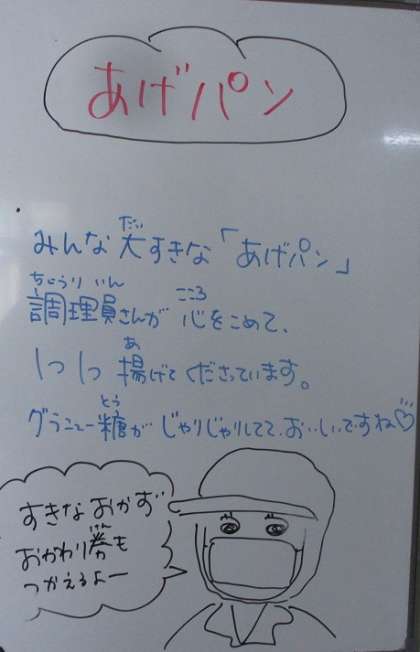 あげパン
みんな大すきな「あげパン」
調理員さんが 心をこめて、
1つ1つ 揚げて くださっています。
グラニュー糖が じゃりじゃりしてて、おいしいですね♡
すきなおかず
おかわり券も
つかえるよー